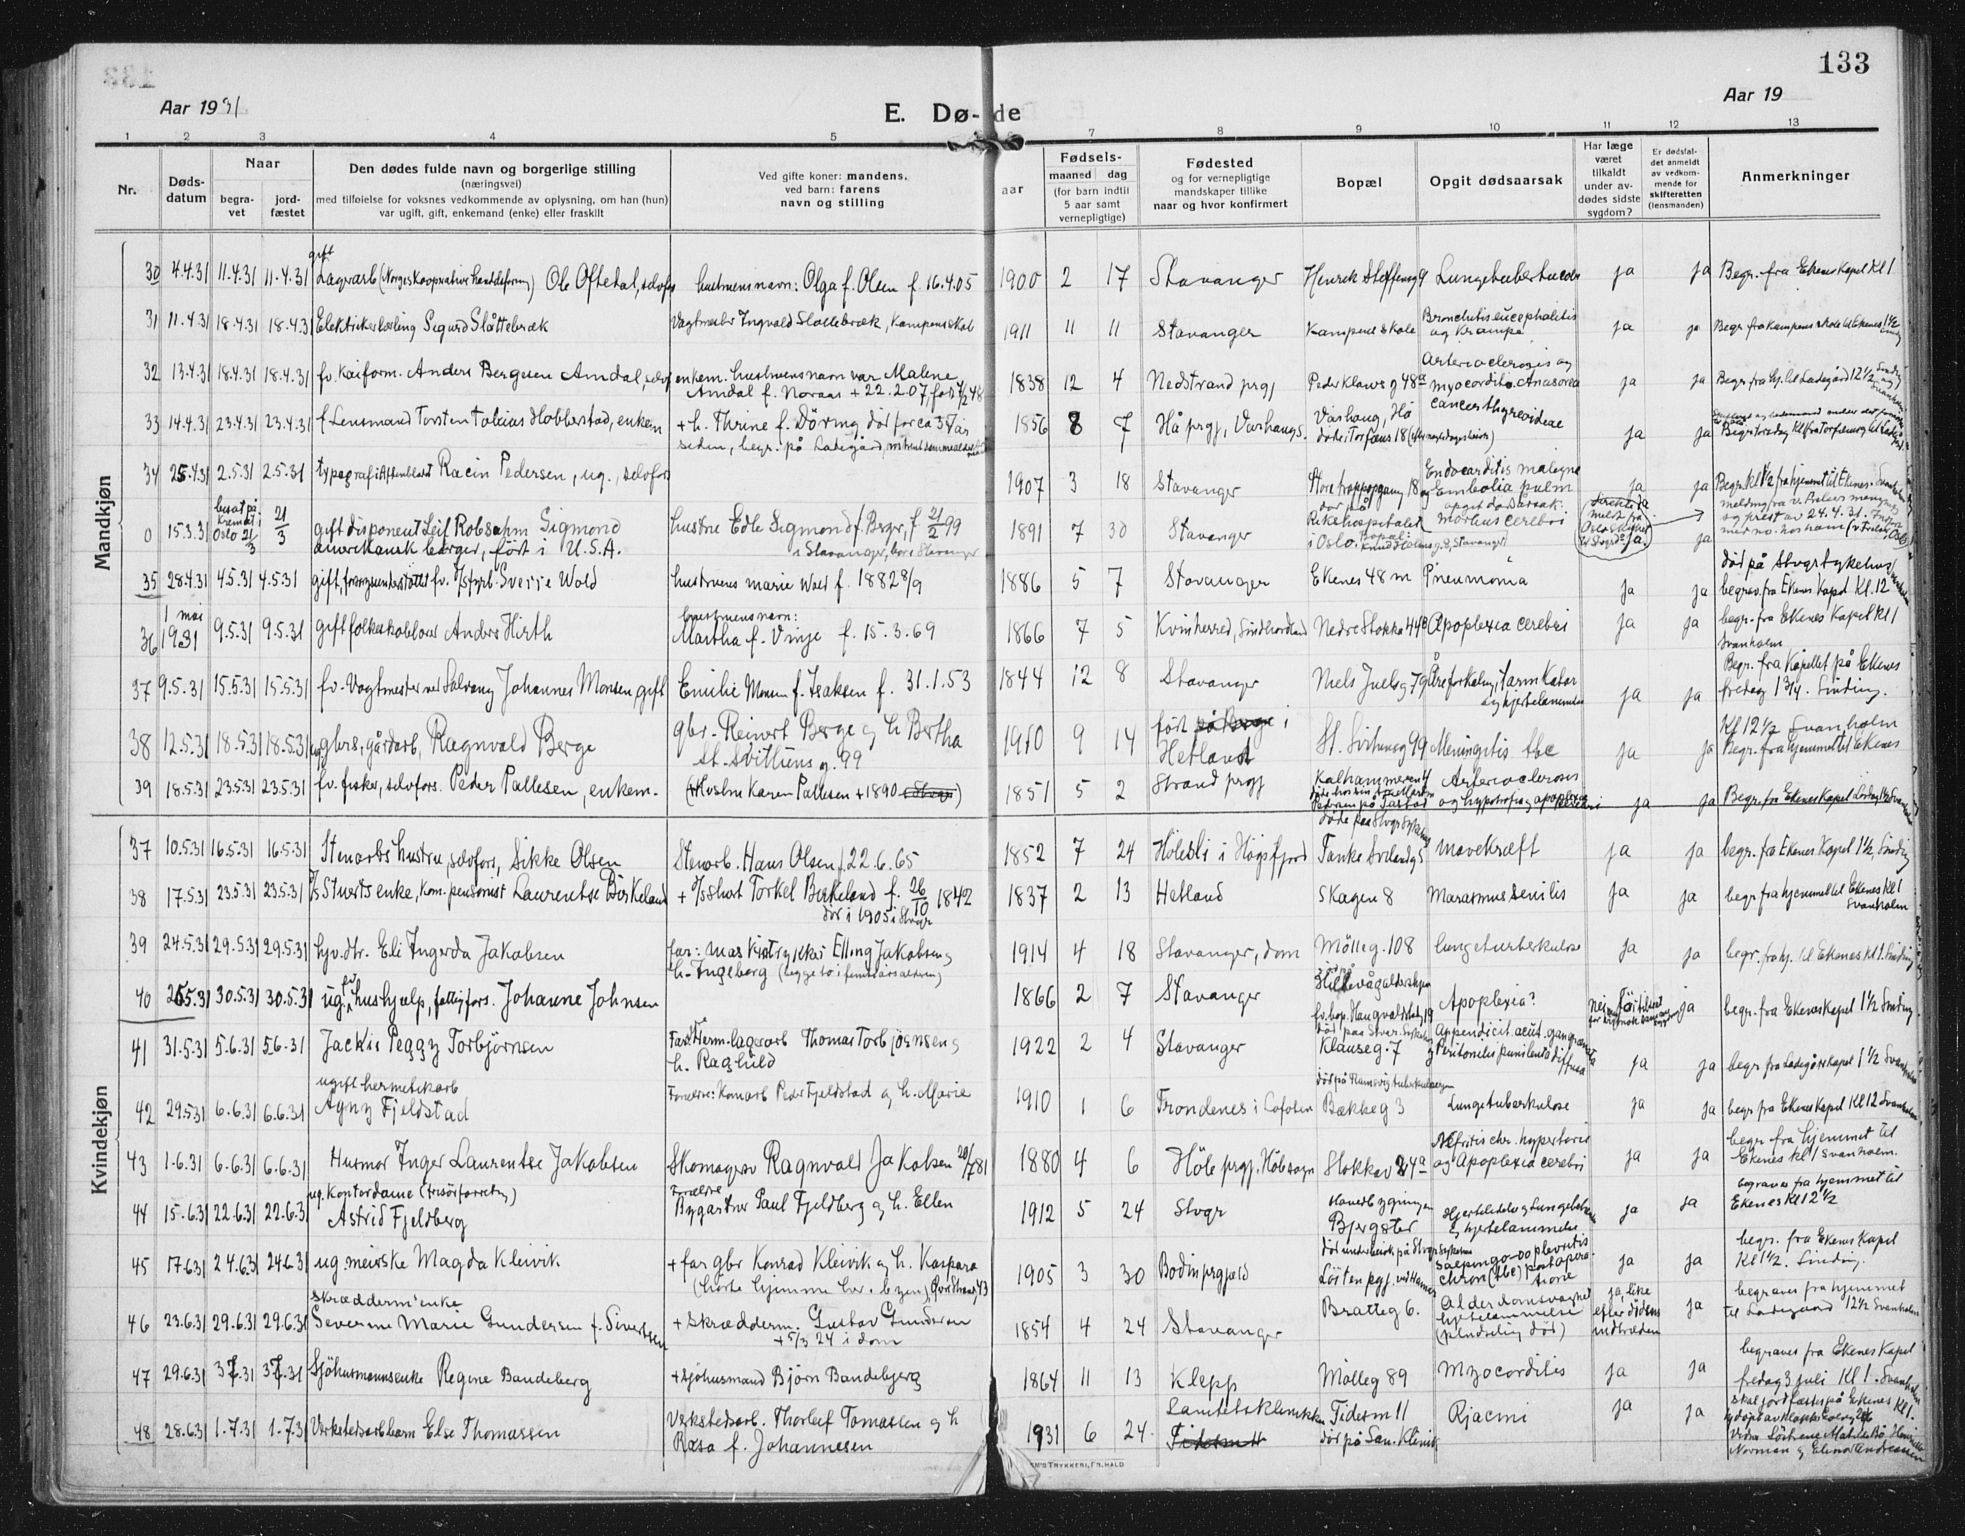 133
Aar 1931
E. Dø- de
Aar 19
1 2 3 4 5 7 8 9 10 11 12 13
Nr.
Døds-
datum
Naar
begra-
vet
jord-
fæstet
Den dødes fulde navn og borgerlige stilling
(næringsvei)
med tilføielse for voksnes vedkommende av oplysning, om han (hun)
var ugift, gift, enkemand (enke) eller fraskilt
Ved gifte koner: mandens,
ved barn: farens
navn og stilling
aar
Fødsels-
maaned dag
(for barn indtil
5 aar samt
vernepligtige)
Fødested
og for vernepligtige
mandskaper tillike
naar og hvor konfirmert
Bopæl
Opgit dødsaarsak
Har læge
været
tilkaldt
under av-
dødes sidste
sygdom?
Er dødsfal-
det anmeldt
av vedkom-
mende for
skifteretten
(lensmanden)
Anmerkninger
Mandkjøn
30 4.4.31 11.4.31 11.4.31 gift Lagerarb (Norges Kooperative Landsforeng) Ole Oftedal, selvfors hustruens navn: Olga f. Olsen f. 16.4.05 1900 2 17 Stavanger Henrik Steffensg 9 Lungetuberkulose ja ja Begr. fra Ekenes Kapel Kl 1
31 11.4.31 18.4.31 18.4.31 Elektrikerlærling Sigurd Slåttebræk Vagtmester Ingvald Slåttebræk, Kampens skole 1911 11 11 Stavanger Kampens skole Bronchitis encephalitis og Krampe ja ja Begr fra Kampens skole til Ekenes 1 1/2
32 13.4.31 18.4.31 18.4.31 fv. Kaiform. Anders Bergesen Amdal, selvf enkem. hustruens navn var Malene
Amdal f. Noraas + 22.2.07, født 7/2 48 1838 12 4 Nedstrand prgj Peder Klaws g 48a Arteriosclerosis og
myocardit. Anasarca ja ja Begr fra hj. til Ladegård 12 1/2
33 14.4.31 23.4.31 23.4.31 f Lensmand Torsten Tobias Hobberstad, enkem + h. Thrine f. Döring død for ca 35 år
siden, begr. på Ladegård 1856 8 7 Hå prgj, Varhaugs. Varhaug, Hå
døde i Torfæus 18 cancer thyreoideae ja ja
34 25.4.31 2.5.31 2.5.31 typograf Racin Pedersen, ug., selvfors 1907 3 18 Stavanger Store trappegang 18 Endocarditis maligne
og Embolia pulm ja ja
0 15.3.31 brent på
Kremat. i
Oslo 21/3 21/3 gift disponent Leif Robsahm Sigmond
amerikansk borger, født i U.S.A. hustru Edle Sigmond f. Berger, f 21/2 99
i Stavanger, bor i Stavanger 1891 7 30 Stavanger dør på
Rikshospitalet
i Oslo. Bopæl:
Knud Holmsg 8, Stavanger opgit dødsårsak:
morbus cerebri ja. ja
35 28.4.31 4.5.31 4.5.31 gift, fv. Sverre Wold hustruens marie Wold f. 1882 8/9 1886 5 7 Stavanger Ekenes 48 m Pneumonia ja ja død på Stvgr sykehus
begrav. fra Ekenes Kapel Kl. 12
36 1 mai
1931 9.5.31 9.5.31 gift Anders Hirth hustruens navn:
Martha f. Vinje f. 15.3.69 1866 7 5 Kvinherred, Sundhordland Nedre Stokka 44c Apoplexia cerebri ja ja begr. fra Ekenes Kapel kl 1
Svanholm
37 9.5.31 15.5.31 15.5.31 fv. Vagtmester ved Salvang Johannes Monsen gift Emilie Monsen f. Isaksen f. 31.1.53 1844 12 8 Stavanger Niels Juelsg 79 Åreforkalkning, Tarmkatar
og hjertelammelse ja ja Begr. fra Kapellet på Ekenes
fredag 1 3/4. Sinding.
38 12.5.31 18.5.31 18.5.31 ug gbrs, gårdarb, Ragnvald Berge gbr. Reinert Berge og h Bertha
St. Svithuns g. 99 1910 9 14 født i
Hetland St. Svithunsg 99 Meningitis tbc ja ja Kl 12 1/2 Svanholm
Begr. fra hjemmet til Ekenes
39 18.5.31 23.5.31 23.5.31 fv. fisker, selvfors. Peder Pallesen, enkem. (Hustru Karen Pallesen + 1890) 1851 5 2 Strand prgj Kalhammeren 4 Arteriosclerosis
og hypotrofi og apoplexia cerebri ja ja Begr. fra Ekenes Kapel Lørdag 1 1/2 Svanholm
Kvindekjøn
37 10.5.31 16.5.31 16.5.31 Stenarbs hustru, selvfors, Sikke Olsen Stenarb. Hans Olsen f 22.6.65 1852 7 24 Hölesli i Høgsfjord døde paa Stvgr Sykehus
Tanke Svilandg 5 mavekræft ja ja begr. fra Ekenes Kapel 1 1/2, Sinding
38 17.5.31 23.5.31 23.5.31 D/s Stuerts enke, kom. pensionist Laurentse Birkeland + D/s Stuert Torkel Birkeland f. 26/10 1842
dør i 1905 i Stvgr 1837 2 13 Hetland Skagen 8 Marasmus senilis ja ja begr. fra hjemmet til Ekenes Kl 1
Svanholm
39 24.5.31 29.5.31 29.5.31 hjv. dtr. Eli Ingerda Jakobsen far: Maskinist Elling Jakobsen g
h. Ingeborg (begge to i femtiårsalderen) 1914 4 18 Stavanger, dom Mölleg. 108 lungetuberkulose ja ja begr. fra hj. til Ekenes Kl 1. Sinding
40 26.5.31 30.5.31 30.5.31 ug. fv hushjælp, fattigfors. Johanne Johnsen 1866 2 7 Stavanger Hillevåg aldershjem
fv. bop. Haugvaldstadg 19 Apoplexia? nei ja begr. fra Ekenes Kapel 1 1/2 Sinding
41 31.5.31 5.6.31 5.6.31 Jackis Peggy Torbjörnsen Far: Herm. lagerarb Thomas Torbjörnsen g
h. Raghild 1922 2 4 Stavanger død paa Stvgr. Sykehus
Klauseg. 7 Appendicit. acut. gangrænosa
g Peritonitis purulenta diffusa ja ja begr. fra Ladegårds kapel 1 1/2 Svanholm
42 29.5.31 6.6.31 6.6.31 ugift hermetikarb
Agny Fjeldstad Forældre: Komarb Peder Fjeldstad og h. Marie 1910 1 6 Trondenes i Lofoten død på Ramsvig tuberkulosehjem
Bækkeg 3 Lungetuberkulose ja ja begr fra Ekenes Kapel Kl 12 Svanholm
43 1.6.31 6.6.31 6.6.31 Husmor Inger Laurentse Jakobsen Skomager Ragnvald Jakobsen 20/7 81 1880 4 6 Höle prgj. Höle sogn Stokkav 24a Nefritis chr. hypertonie
og Apoplexia cerebri ja ja begr. fra hjemmet til
Ekenes kl 1 Svanholm.
44 15.6.31 22.6.31 22.6.31 ug. Kontordame (frisörforretng)
Astrid Fjeldberg Forældre
Bygartner Paul Fjeldberg og h. Ellen 1912 5 24 Stvgr Havebygningen
Bjergsted og hjertelammelse ja ja begraves fra hjemmet til
Ekenes Kl 12 1/2
45 17.6.31 24.6.31 24.6.31 ug. meierske Magda Kleivik + far gbr Konrad Kleivik og h. Kaspara 1905 3 30 Bodin prgjeld Löiten pgj. ved Hamar Salpingo-oophoritis
chron (tbc) post operatione ja ja begr. fra Ekenes Kapel
Kl 1 1/2. Sinding.
46 23.6.31 29.6.31 29.6.31 Skrædderm enke
Severine Marie Gundersen f. Sivertsen + Skrædderm. Gustav Gundersen
+ 5/3 24 i dom 1854 4 24 Stavanger Bratteg 6. Alderdomssvaghet
hjertelammelse
(pludselig død) ja, like
efter dødens
indtræden ja begraves fra hjemmet
til Ladegaard 12 1/2 Svanholm
47 29.6.31 3.7.31 3.7.31 Sjöhusmannsenke Regine Bandeberg + sjöhusmand Björn Bandeberg 1864 11 13 Klepp Mölleg 89 Myocorditis ja ja begraves fra Ekenes Kapel
fredag 3 juli Kl 1. Svanholm
48 28.6.31 1.7.31 1.7.31 Verkstedsarb barn Else Thomassen Verkstedsarb. Thorleif Tomassen og h
Rosa f. Johannesen 1931 6 24 Sanitetsklinikken Tidesm 11
død på San. Klinik Rjacmi ja ja skal jordfæstes på Ekenes Kl 1.
EMS TRYKKERI, FR. HALD